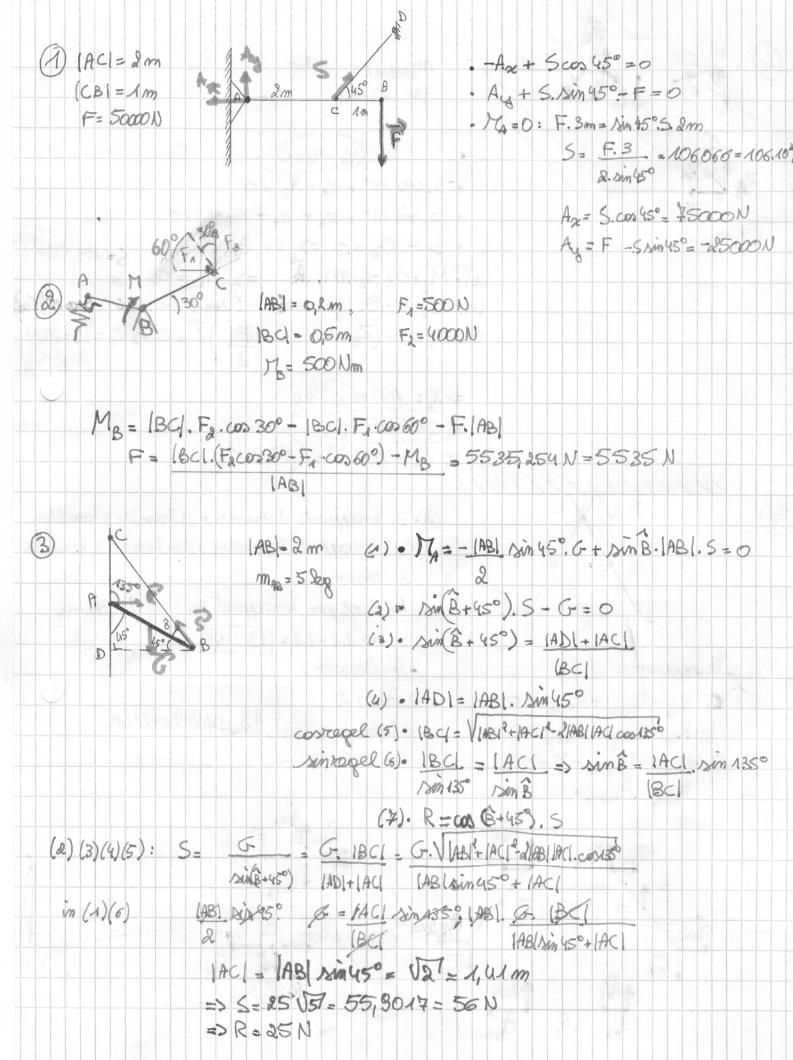 1 |AC| = 2m
|CB| = 1m
F = 50000N
A Ax Ay 2m S 45° C 1m B D F
• -Ax + S cos 45° = 0
• Ay + S. sin 45° - F = 0
• MA = 0 : F. 3m = sin 45°. S. 2m
S = F. 3 / 2. sin 45° = 106066 = 106.10³
Ax = S. cos 45° = 75000N
Ay = F - S sin 45° = -25000N
2 A M B C 60° 30° F1 F2 30°
|AB| = 0,2m, F1 = 500N
|BC| = 0,5m F2 = 4000N
MB = 500Nm
MB = |BC|. F2. cos 30° - |BC|. F1. cos 60° - F. |AB|
F = |BC|. (F2 cos 30° - F1. cos 60°) - MB / |AB| = 5535,254 N = 5535 N
3 C A 135° D 45° 45° B G S
|AB| = 2m
mAB = 5kg
(1) • MA = -|AB|/2 sin 45°. G + sin B̂. |AB|. S = 0
(2) • sin(B̂ + 45°). S - G = 0
(3) • sin(B̂ + 45°) = |AD| + |AC| / |BC|
(4) • |AD| = |AB|. sin 45°
cosregel (5) • |BC| = √|AB|² + |AC|² - 2|AB||AC| cos 135°
sinregel (6) • |BC| / sin 135° = |AC| / sin B̂ => sin B̂ = |AC| / |BC| . sin 135°
(7) • R = cos (B̂ + 45°). S
(2)(3)(4)(5) : S = G / sin(B̂ + 45°) = G. |BC| / |AD| + |AC| = G. √|AB|² + |AC|² - 2|AB||AC|. cos 135° / |AB| sin 45° + |AC|
in (1)(6) |AB|/2 sin 45° G = |AC| / |BC| sin 135°. |AB|. G. |BC| / |AB| sin 45° + |AC|
|AC| = |AB| sin 45° = √2 = 1,41 m
=> S = 25 √5 = 55,9017 = 56 N
=> R = 25 N